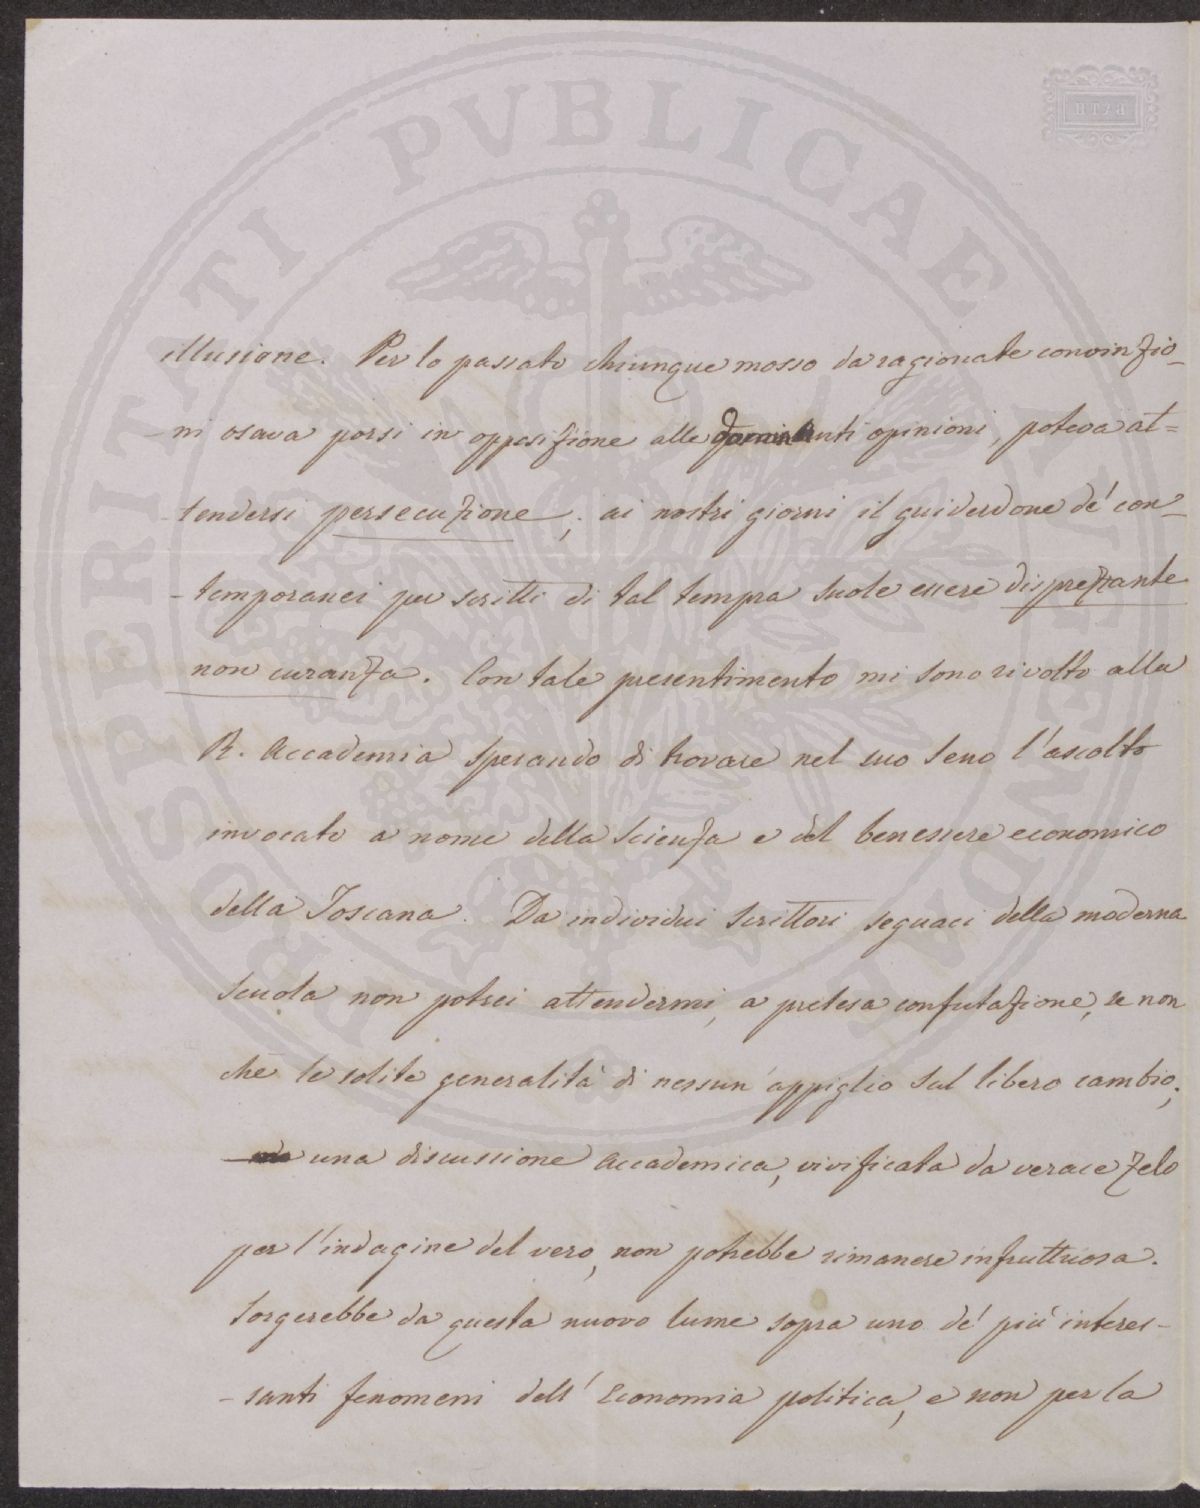 illusione. Per lo passato chiunque mosso da ragionate convinzio-
-ni osava porsi in opposizione alle dominanti opinioni, poteva at=
tendersi persecuzione; ai nostri giorni il guiderdone de' con-
-temporanei per scritti di tal tempra suole essere disprezzante
non curanza. Con tale presentimento mi sono rivolto alla
R. Accademia sperando di trovare nel suo seno l'ascolto
invocato a nome della Scienza e del benessere economico
della Toscana. Da individui Scrittori seguaci della moderna
Scuola non potrei attendermi, a pretesa confutazione, se non
che le solite generalità di nessun appiglio sul libero cambio;
ma una discussione Accademica, vivificata da verace zelo
per l'indagine del vero, non potrebbe rimanere infruttuosa.
Sorgerebbe da questa nuovo lume sopra uno de' più interes-
-santi fenomeni dell' Economia politica, e non per la
PROSPERITATI PVBLICAE AVGENDAE